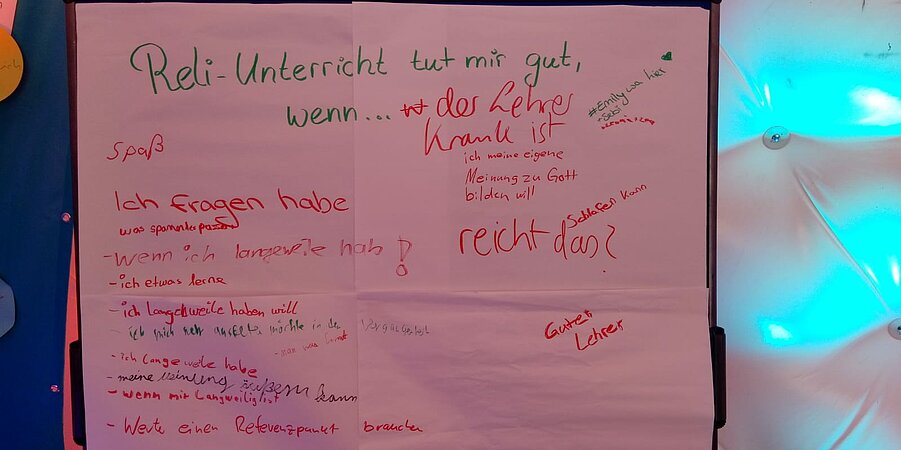 Reli-Unterricht tut mir gut,
wenn... der Lehrer
krank ist
#Emily wa hier
Spaß
ich meine eigene
Meinung zu Gott
bilden will
Ich fragen habe
was
Schlafen kann
reicht das?
- wenn ich langeweile hab!
- ich etwas lerne
- ich langeweile haben will
- ich mich mehr möchte in der
- man was lernt
Guter
Lehrer
- ich langeweile habe
- meine Meinung äußern kann
- wenn mir Langweilig ist
- Werte einen Refevenzpunkt brauchen